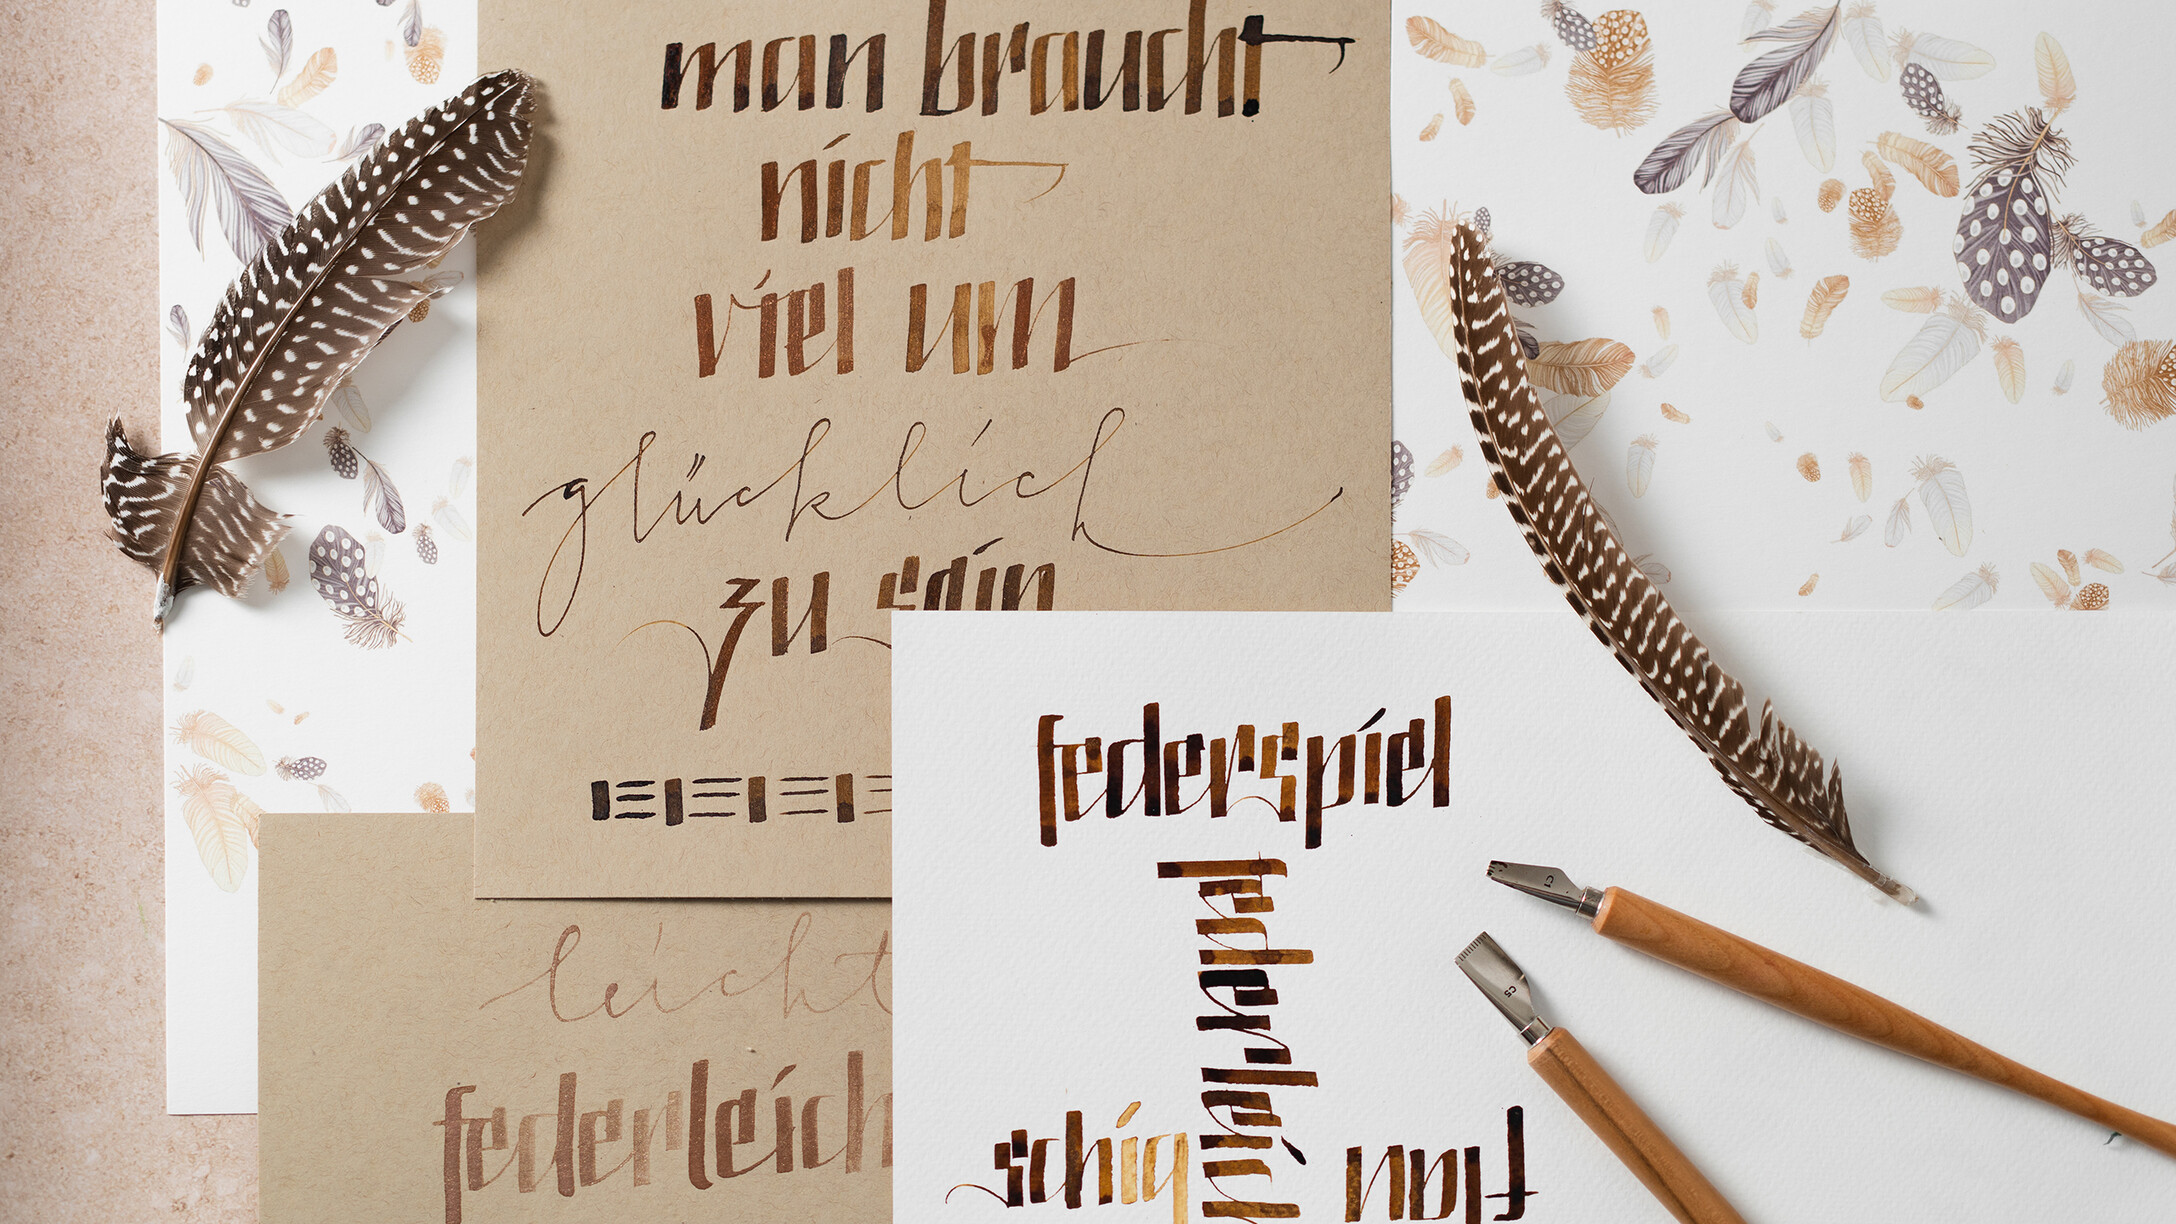 man braucht
nicht
viel um
glücklich
zu sein
leicht
federleich
federspiel
federleich
schig
flau
C1
C5